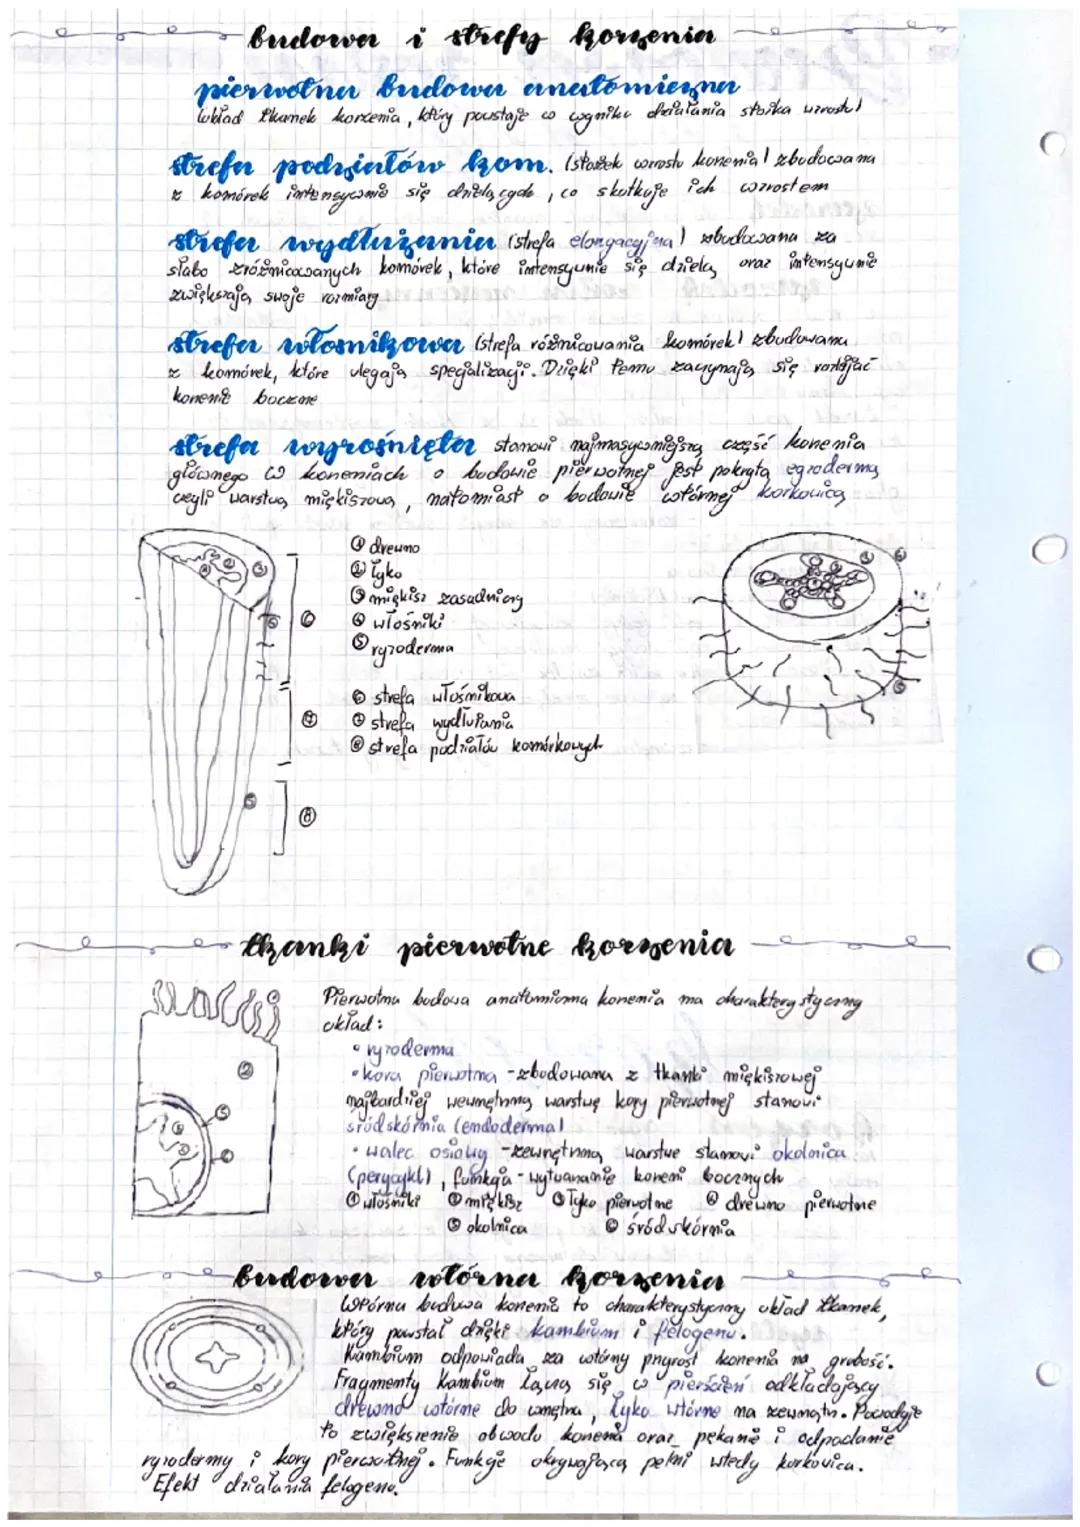 budowa i strefy korzenia
pierwotna budowa anatomiczna
(układ tkanek korzenia, który powstaje w wyniku działania stożka wzrostu)
strefa podziałów kom. (stożek wzrostu korzenia) zbudowana
z komórek intensywnie się dzielących, co skutkuje ich wzrostem
strefa wydłużania (strefa elongacyjna) zbudowana za
słabo zróżnicowanych komórek, które intensywnie się dzielą oraz intensywnie
zwiększają swoje rozmiary
strefa włośnikowa (strefa różnicowania komórek) zbudowana
z komórek, które ulegają specjalizacji. Dzięki temu zaczynają się rozwijać
korzenie boczne
strefa wyrośnięta stanowi najmasywniejszą część korzenia
głównego w korzeniach o budowie pierwotnej jest pokryta egzodermą
czyli warstwą miękiszową, natomiast o budowie wtórnej korkowicą
① drewno
② łyko
③ miękisz zasadniczy
④ włośniki
⑤ ryzoderma
⑥ strefa włośnikowa
⑦ strefa wydłużania
⑧ strefa podziałów komórkowych
tkanki pierwotne korzenia
Pierwotna budowa anatomiczna korzenia ma charakterystyczny
układ:
• ryzoderma
• kora pierwotna - zbudowana z tkanki miękiszowej
najbardziej wewnętrzną warstwę kory pierwotnej stanowi
śródskórnia (endoderma)
• walec osiowy - zewnętrzną warstwę stanowi okolnica
(perycykl), funkcja - wytwarzanie korzeni bocznych
① włośniki ② miękisz ③ łyko pierwotne ④ drewno pierwotne
⑤ okolnica ⑥ śródskórnia
budowa wtórna korzenia
Wtórna budowa korzenia to charakterystyczny układ tkanek,
który powstał dzięki kambium i felogenu.
Kambium odpowiada za wtórny przyrost korzenia na grubość.
Fragmenty kambium łączą się w pierścień odkładający
drewno wtórne do wnętrza, łyko wtórne na zewnątrz. Powoduje
to zwiększenie obwodu korzenia oraz pękanie i odpadanie
ryzodermy i kory pierwotnej. Funkcje okrywającą pełni wtedy korkowica.
Efekt działania felogenu.